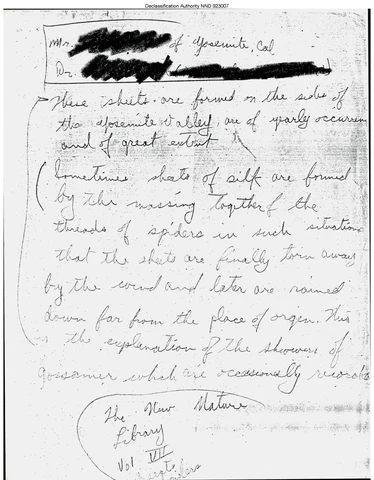 Declassification Authority NND 923007
Mr. of Yosemite, Cal
Dr.
These sheets are formed on the sides of
the Yosemite Valley, are of yearly occurren
and of great extent
Sometimes sheets of silk are formed
by the massing together of the
threads of spiders in such situations
that the sheets are finally torn away
by the wind and later are rained
down far from the place of orgen. This
is the explanation of the showers of
gossamer which are occasionally record
The New Nature
Library
Vol VII